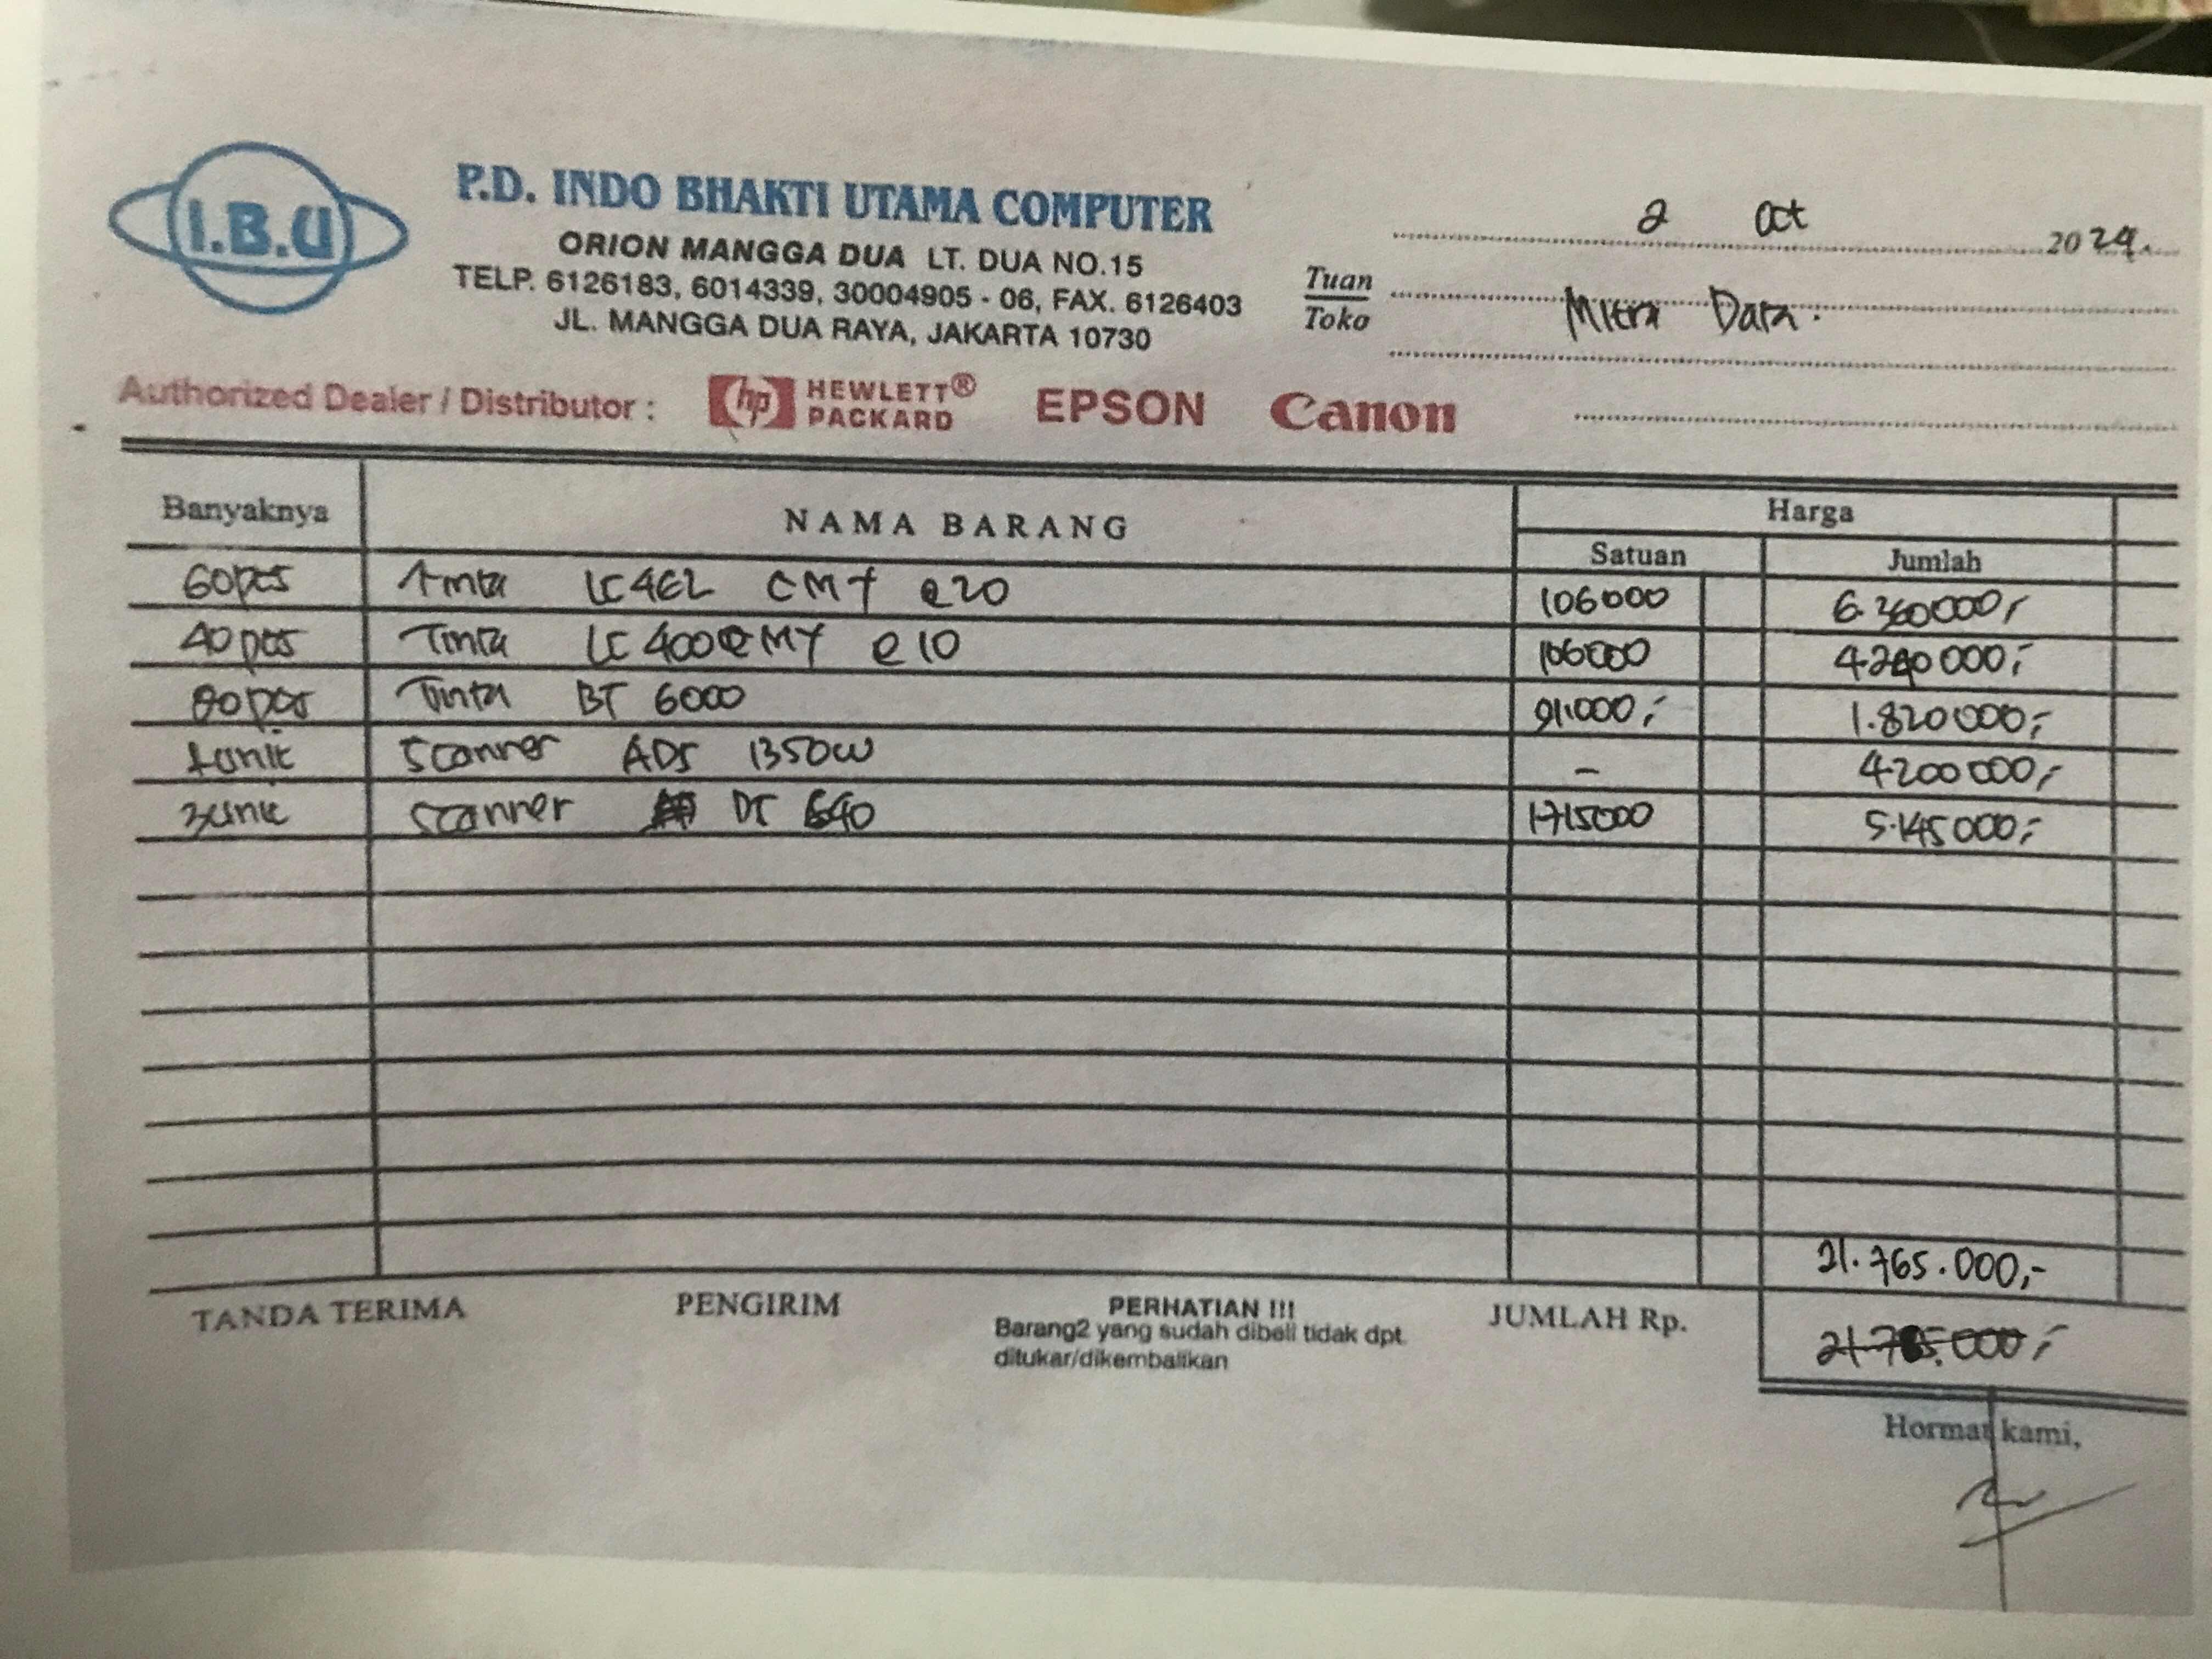 I.B.U
P.D. INDO BHAKTI UTAMA COMPUTER
ORION MANGGA DUA LT. DUA NO.15
TELP. 6126183, 6014339, 30004905 - 06, FAX. 6126403
JL. MANGGA DUA RAYA, JAKARTA 10730
2 Oct 2024.
Tuan
Toko
Mitra Data.
Authorized Dealer / Distributor : hp HEWLETT® PACKARD EPSON Canon
Banyaknya NAMA BARANG Harga
Satuan Jumlah
60pcs Tinta LC462 CMY @20 106000 6.360000,-
40pcs Tinta LC400 CMY @10 106000 4240000,-
Tinta BT 6000 91.000,- 1.820000,-
1unit Scanner ADS 1350W - 4200000,-
3unit Scanner DS 640 1715000 5.145000,-
21.765.000,-
TANDA TERIMA PENGIRIM PERHATIAN !!! JUMLAH Rp.
Barang2 yang sudah dibeli tidak dpt.
ditukar/dikembalikan
Hormat kami,